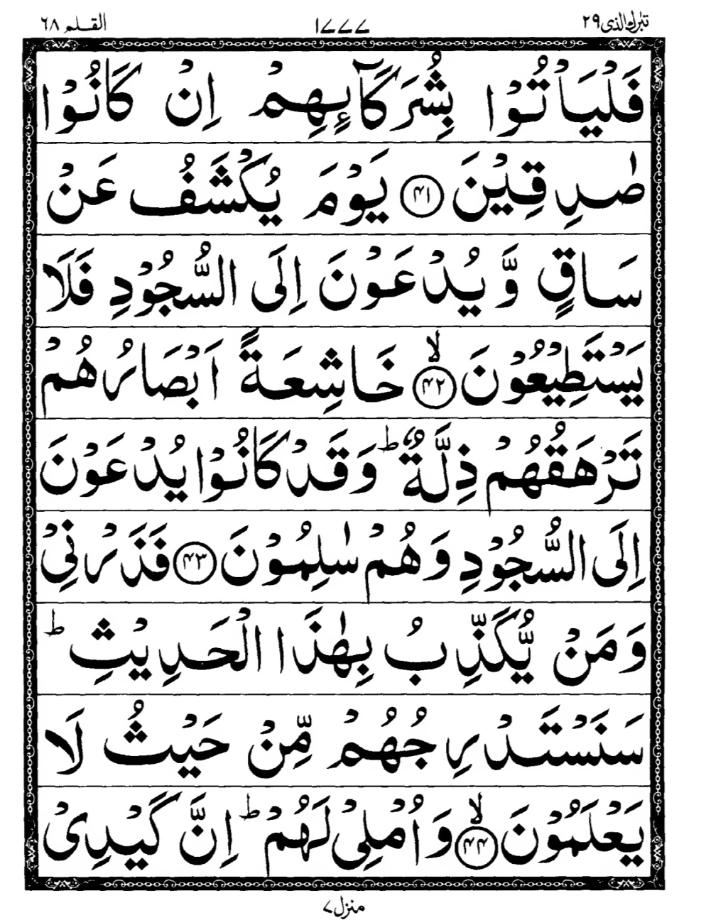 تبٰرك الذی ۲۹ ۱۷۷۷ القلم ۶۸
فَلْيَاْتُوْا بِشُرَكَآئِهِمْ اِنْ كَانُوْا
صٰدِقِيْنَ ﴿۴۱﴾ يَوْمَ يُكْشَفُ عَنْ
سَاقٍ وَّيُدْعَوْنَ اِلَى السُّجُوْدِ فَلَا
يَسْتَطِيْعُوْنَ ۙ﴿۴۲﴾ خَاشِعَةً اَبْصَارُهُمْ
تَرْهَقُهُمْ ذِلَّةٌ ؕ وَقَدْ كَانُوْا يُدْعَوْنَ
اِلَى السُّجُوْدِ وَهُمْ سٰلِمُوْنَ ﴿۴۳﴾ فَذَرْنِيْ
وَمَنْ يُّكَذِّبُ بِهٰذَا الْحَدِيْثِ ؕ
سَنَسْتَدْرِجُهُمْ مِّنْ حَيْثُ لَا
يَعْلَمُوْنَ ۙ﴿۴۴﴾ وَاُمْلِيْ لَهُمْ ؕ اِنَّ كَيْدِيْ
منزل ۷